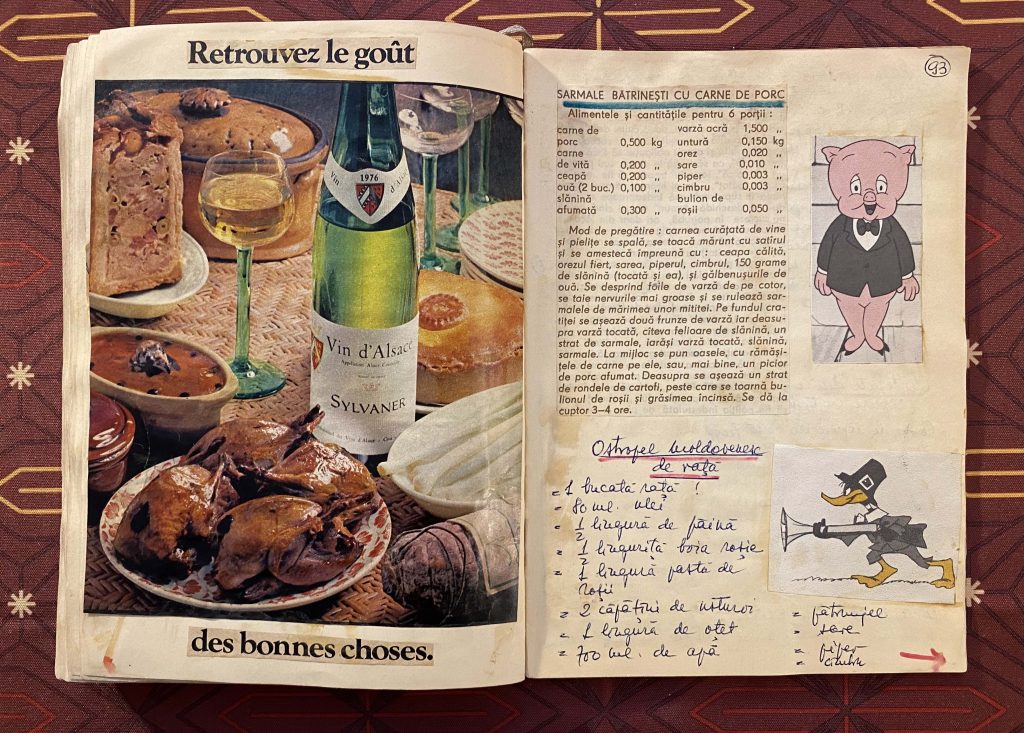 Retrouvez le goût
1976
Vin d'Alsace
SYLVANER
des bonnes choses.
93
SARMALE BĂTRINEȘTI CU CARNE DE PORC
Alimentele și cantitățile pentru 6 porții :
carne de porc 0,500 kg
carne de vită 0,200 „
ceapă 0,200 „
ouă (2 buc.) 0,100 „
slănină afumată 0,300 „
varză acră 1,500 „
untură 0,150 kg
orez 0,020 „
sare 0,010 „
piper 0,003 „
cimbru 0,003 „
bulion de roșii 0,050 „
Mod de pregătire : carnea curățată de vine
și pielițe se spală, se toacă mărunt cu satîrul
și se amestecă împreună cu : ceapa călită,
orezul fiert, sarea, piperul, cimbrul, 150 grame
de slănină (tocată și ea), și gălbenușurile de
ouă. Se desprind foile de varză de pe cotor,
se taie nervurile mai groase și se rulează sar-
malele de mărimea unor mititei. Pe fundul cra-
tiței se așează două frunze de varză iar deasu-
pra varză tocată, cîteva felloare de slănină, un
strat de sarmale, iarăși varză tocată, slănină,
sarmale. La mijloc se pun oasele, cu rămăși-
țele de carne pe ele, sau, mai bine, un picior
de porc afumat. Deasupra se așează un strat
de rondele de cartofi, peste care se toarnă bu-
lionul de roșii și grăsimea încinsă. Se dă la
cuptor 3–4 ore.
Ostropel moldovenesc
de rață
= 1 bucată rață !
= 80 ml. ulei
= 1/2 lingură de făină
= 1/2 linguriță boia roșie
= 1 lingură pastă de
roșii
= 2 căpățîni de usturoi
= 1 lingură de oțet
= 700 ml. de apă
= pătrunjel
= sare
= piper
cimbru